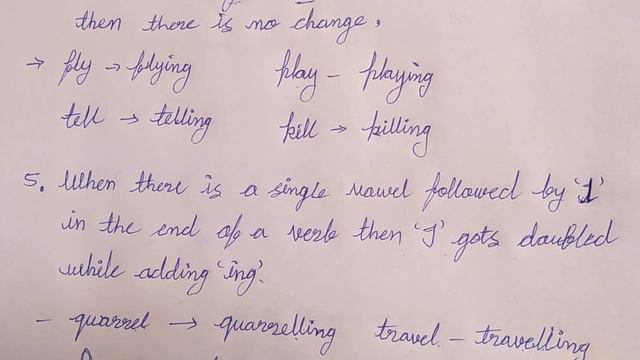 then there is no change,
→ fly → flying play - playing
tell → telling kill → killing
5. When there is a single vowel followed by 'l'
in the end of a verb then 'l' gets doubled
while adding 'ing'.
- quarrel → quarrelling travel - travelling